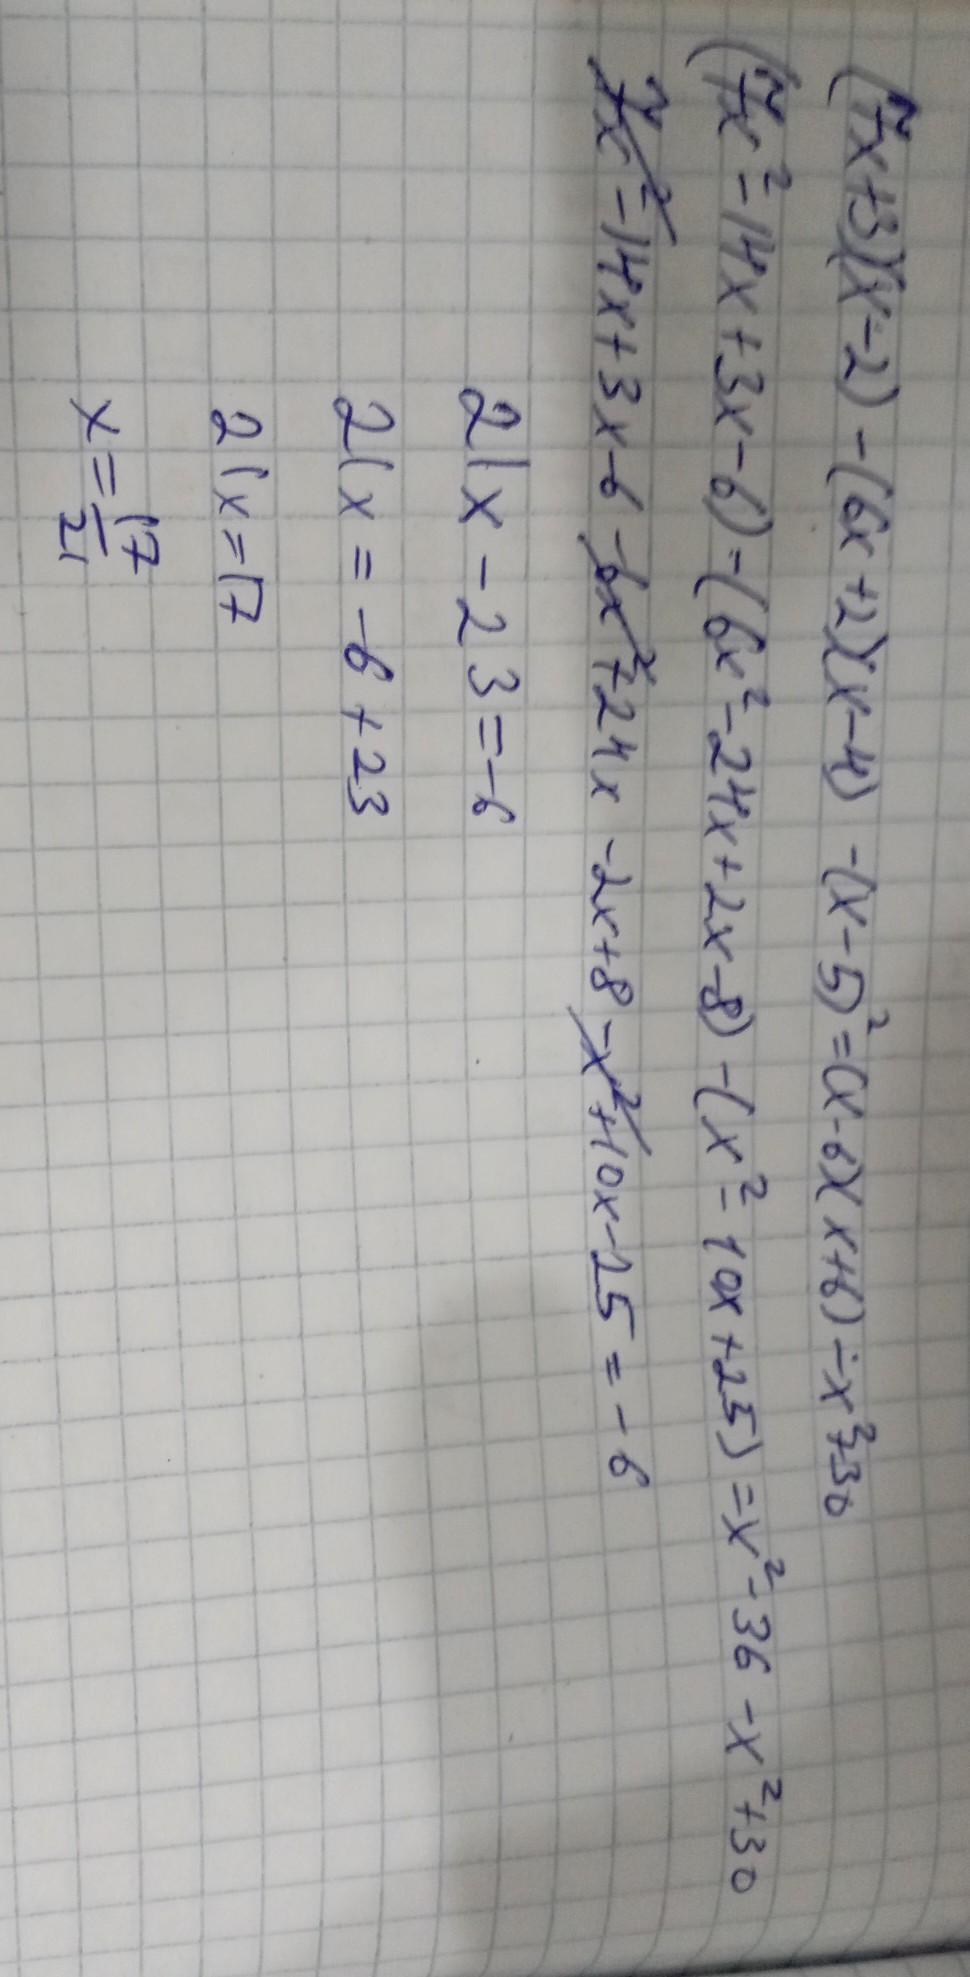 (7x+3)(x-2)-(6x+2)(x-4)-(x-5)²=(x-6)(x+6)-x²+30
(7x²-14x+3x-6)-(6x²-24x+2x-8)-(x²-10x+25)=x²-36-x²+30
7x²-14x+3x-6-6x²+24x-2x+8-x²+10x-25=-6
21x-23=-6
21x=-6+23
21x=17
x=17/21